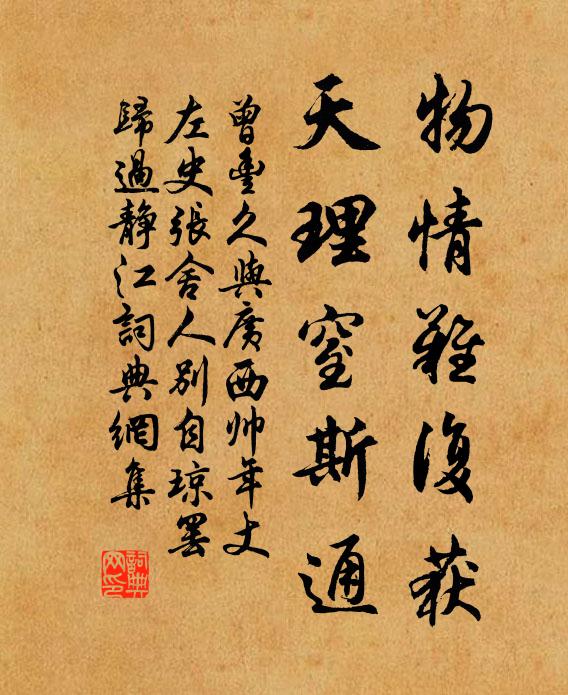 物情難復获
天理窒斯通
曾豐久與廣西帅年丈
左史張舍人別自琼罢
歸過静江詞典網集
詞典
网印